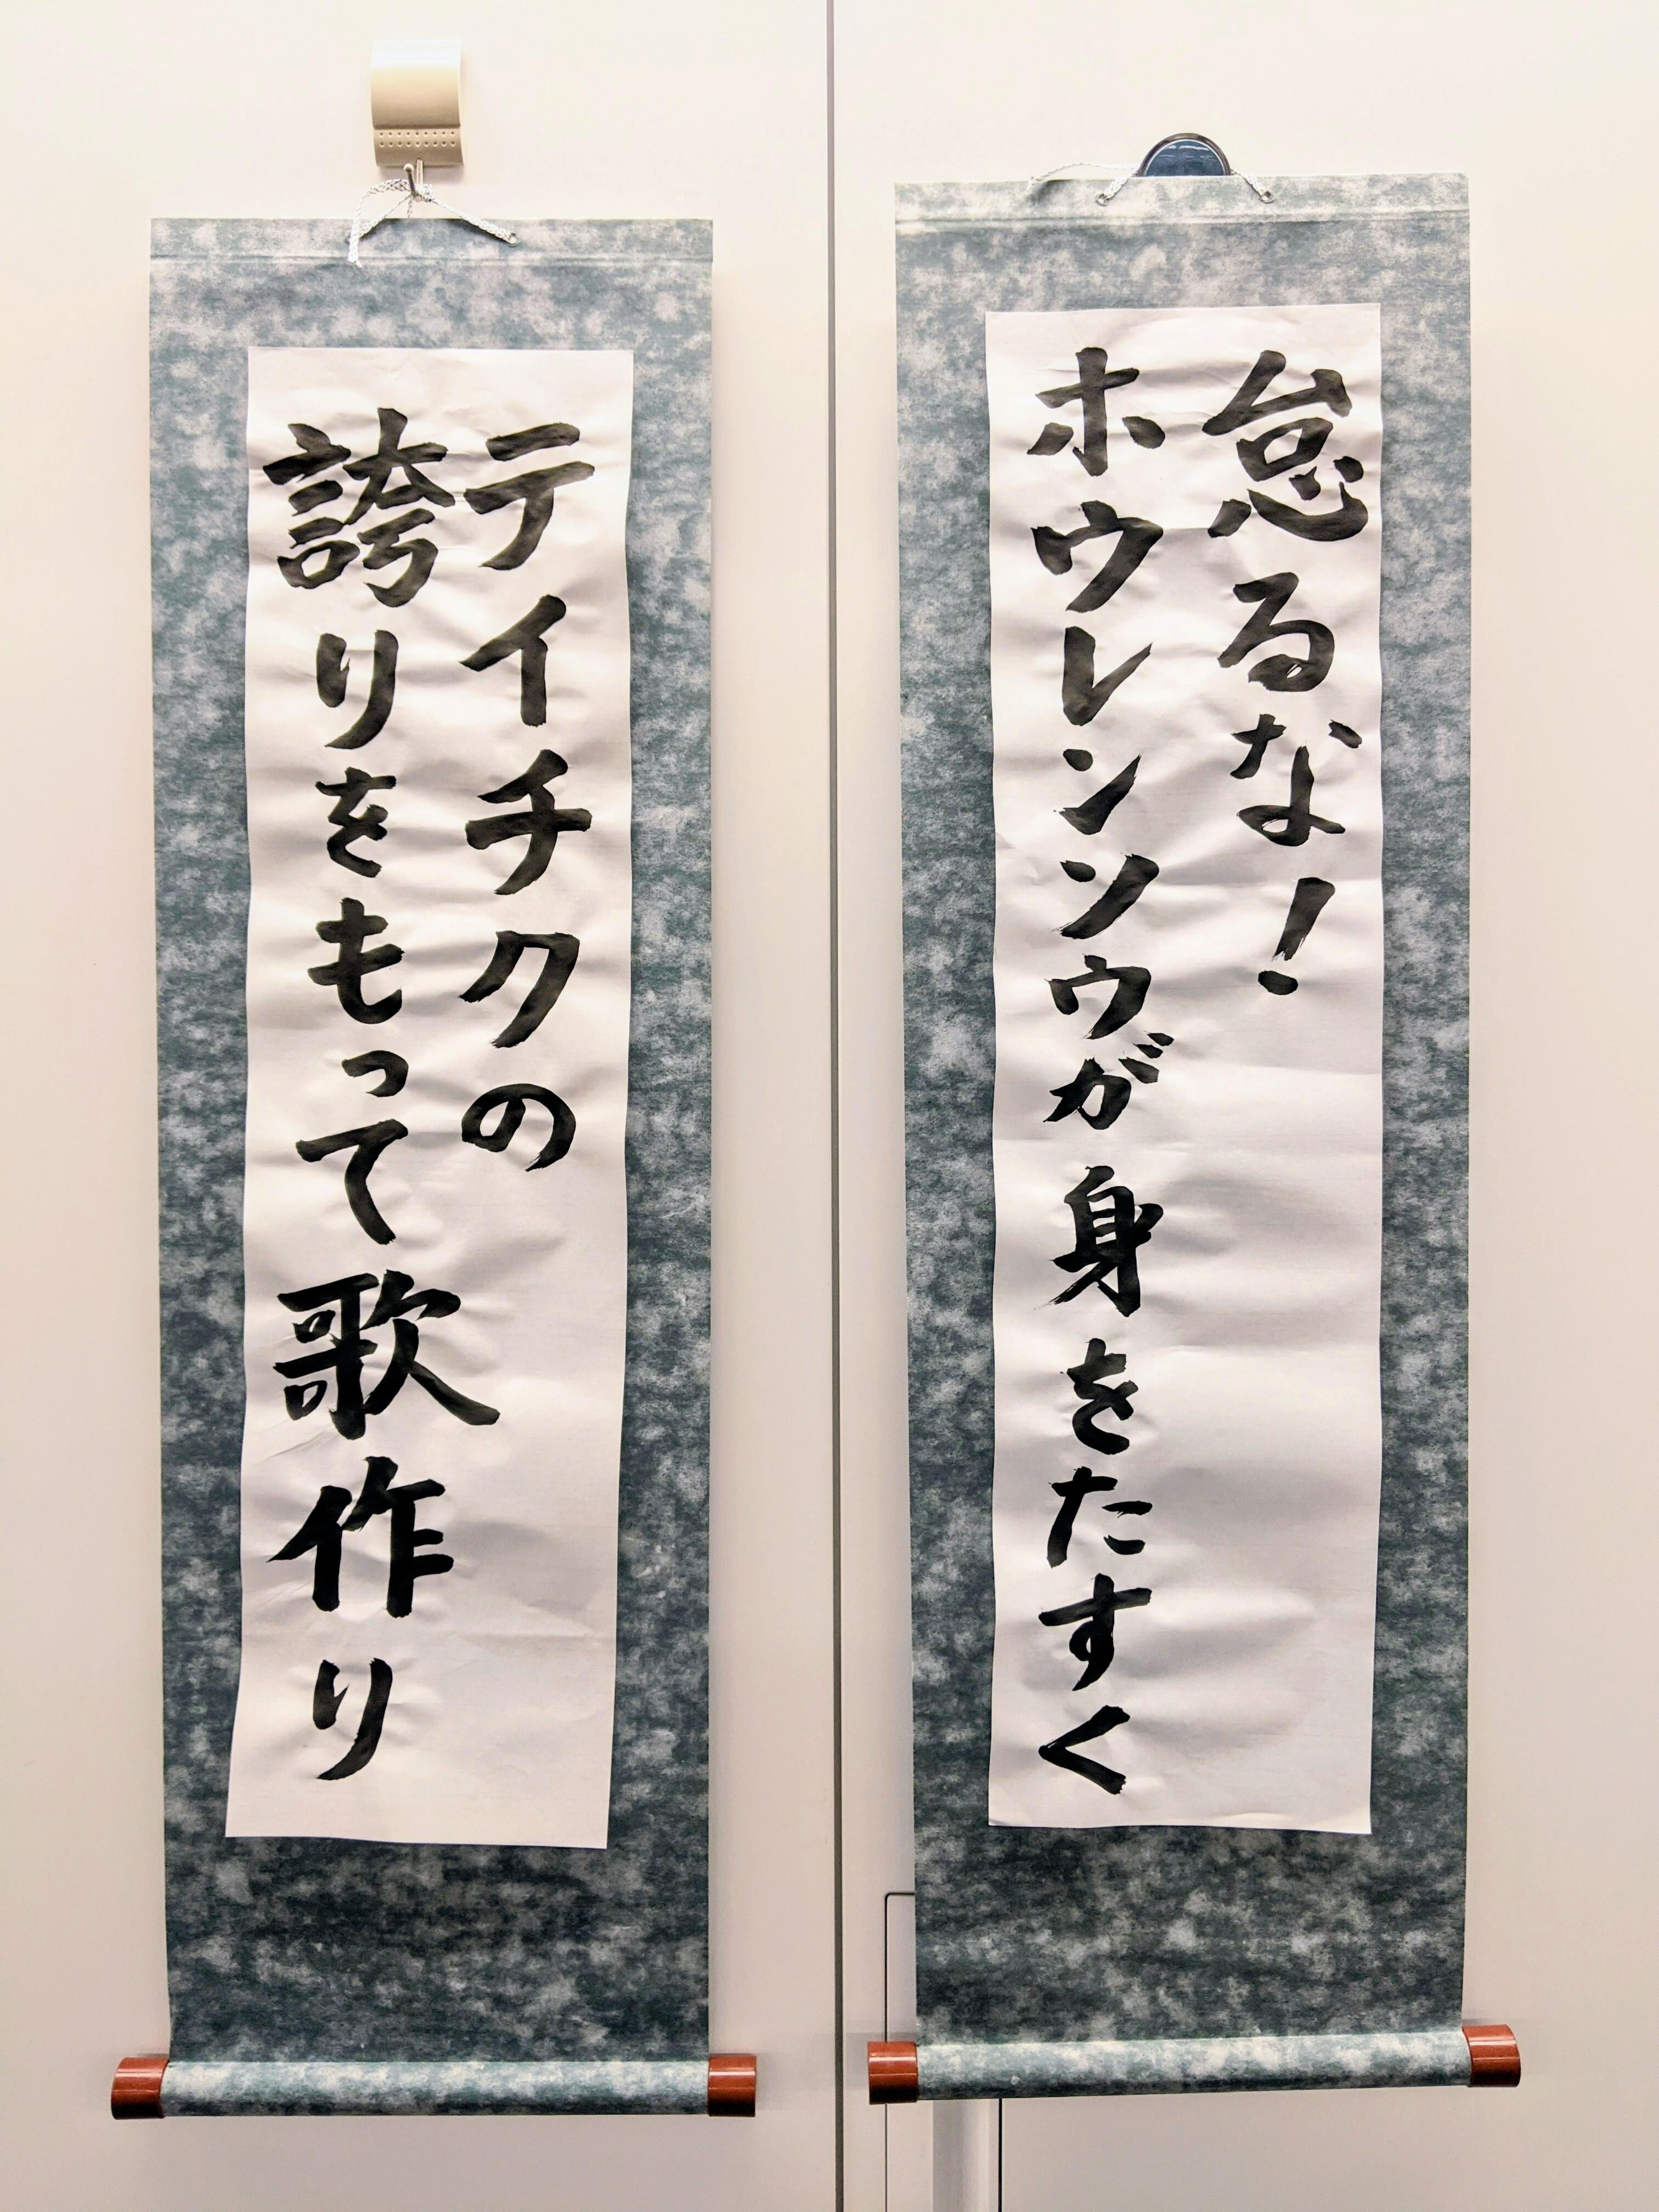 怠るな!
ホウレンソウが身をたすく
テイチクの
誇りをもって歌作り